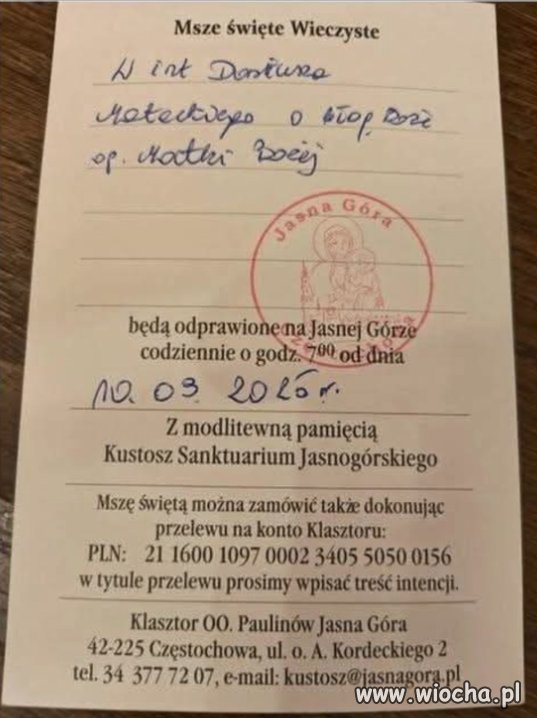 Msze święte Wieczyste
W int Dariusza
Mateckiego o błog. Boże
op. Matki Bożej
Jasna Góra
Częstochowa
będą odprawione na Jasnej Górze
codziennie o godz. 7⁰⁰ od dnia
10. 03. 2025 r.
Z modlitewną pamięcią
Kustosz Sanktuarium Jasnogórskiego
Mszę świętą można zamówić także dokonując
przelewu na konto Klasztoru:
PLN: 21 1600 1097 0002 3405 5050 0156
w tytule przelewu prosimy wpisać treść intencji.
Klasztor OO. Paulinów Jasna Góra
42-225 Częstochowa, ul. o. A. Kordeckiego 2
tel. 34 377 72 07, e-mail: kustosz@jasnagora.pl
www.wiocha.pl